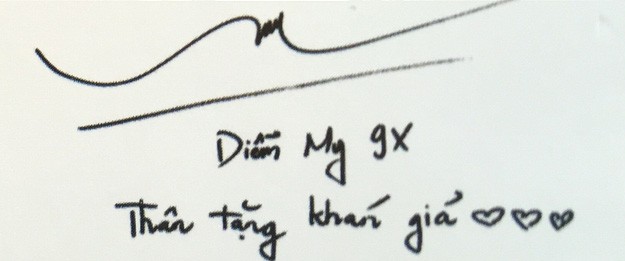 Diễm My 9X
Thân tặng khán giả ♡♡♡